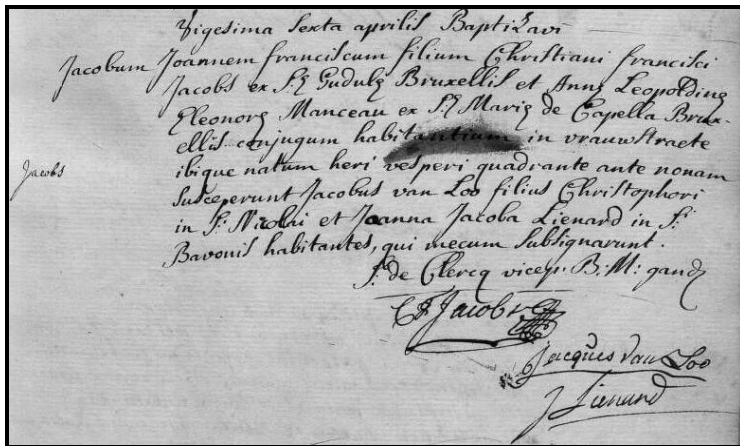 Vigesima Sexta aprilis Baptizavi
Jacobum Joannem franciscum filium Christiani francisci
Jacobs ex S.æ Gudulæ Bruxellis et Annæ Leopoldinæ
Eleonoræ Manceau ex S.æ Mariæ de Capella Brux-
ellis conjugum habitantium in vrauwstraete
Jacobs
ibique natum heri vesperi quadrante ante nonam
Susceperunt Jacobus van Loo filius Christophori
in S.i Nicolai et Joanna Jacoba Lienard in S.i
Bavonis habitantes, qui mecum Subsignarunt.
f. de Clercq vicep. B: M: gandæ
C F Jacobs
Jacques van Loo
J Lienard